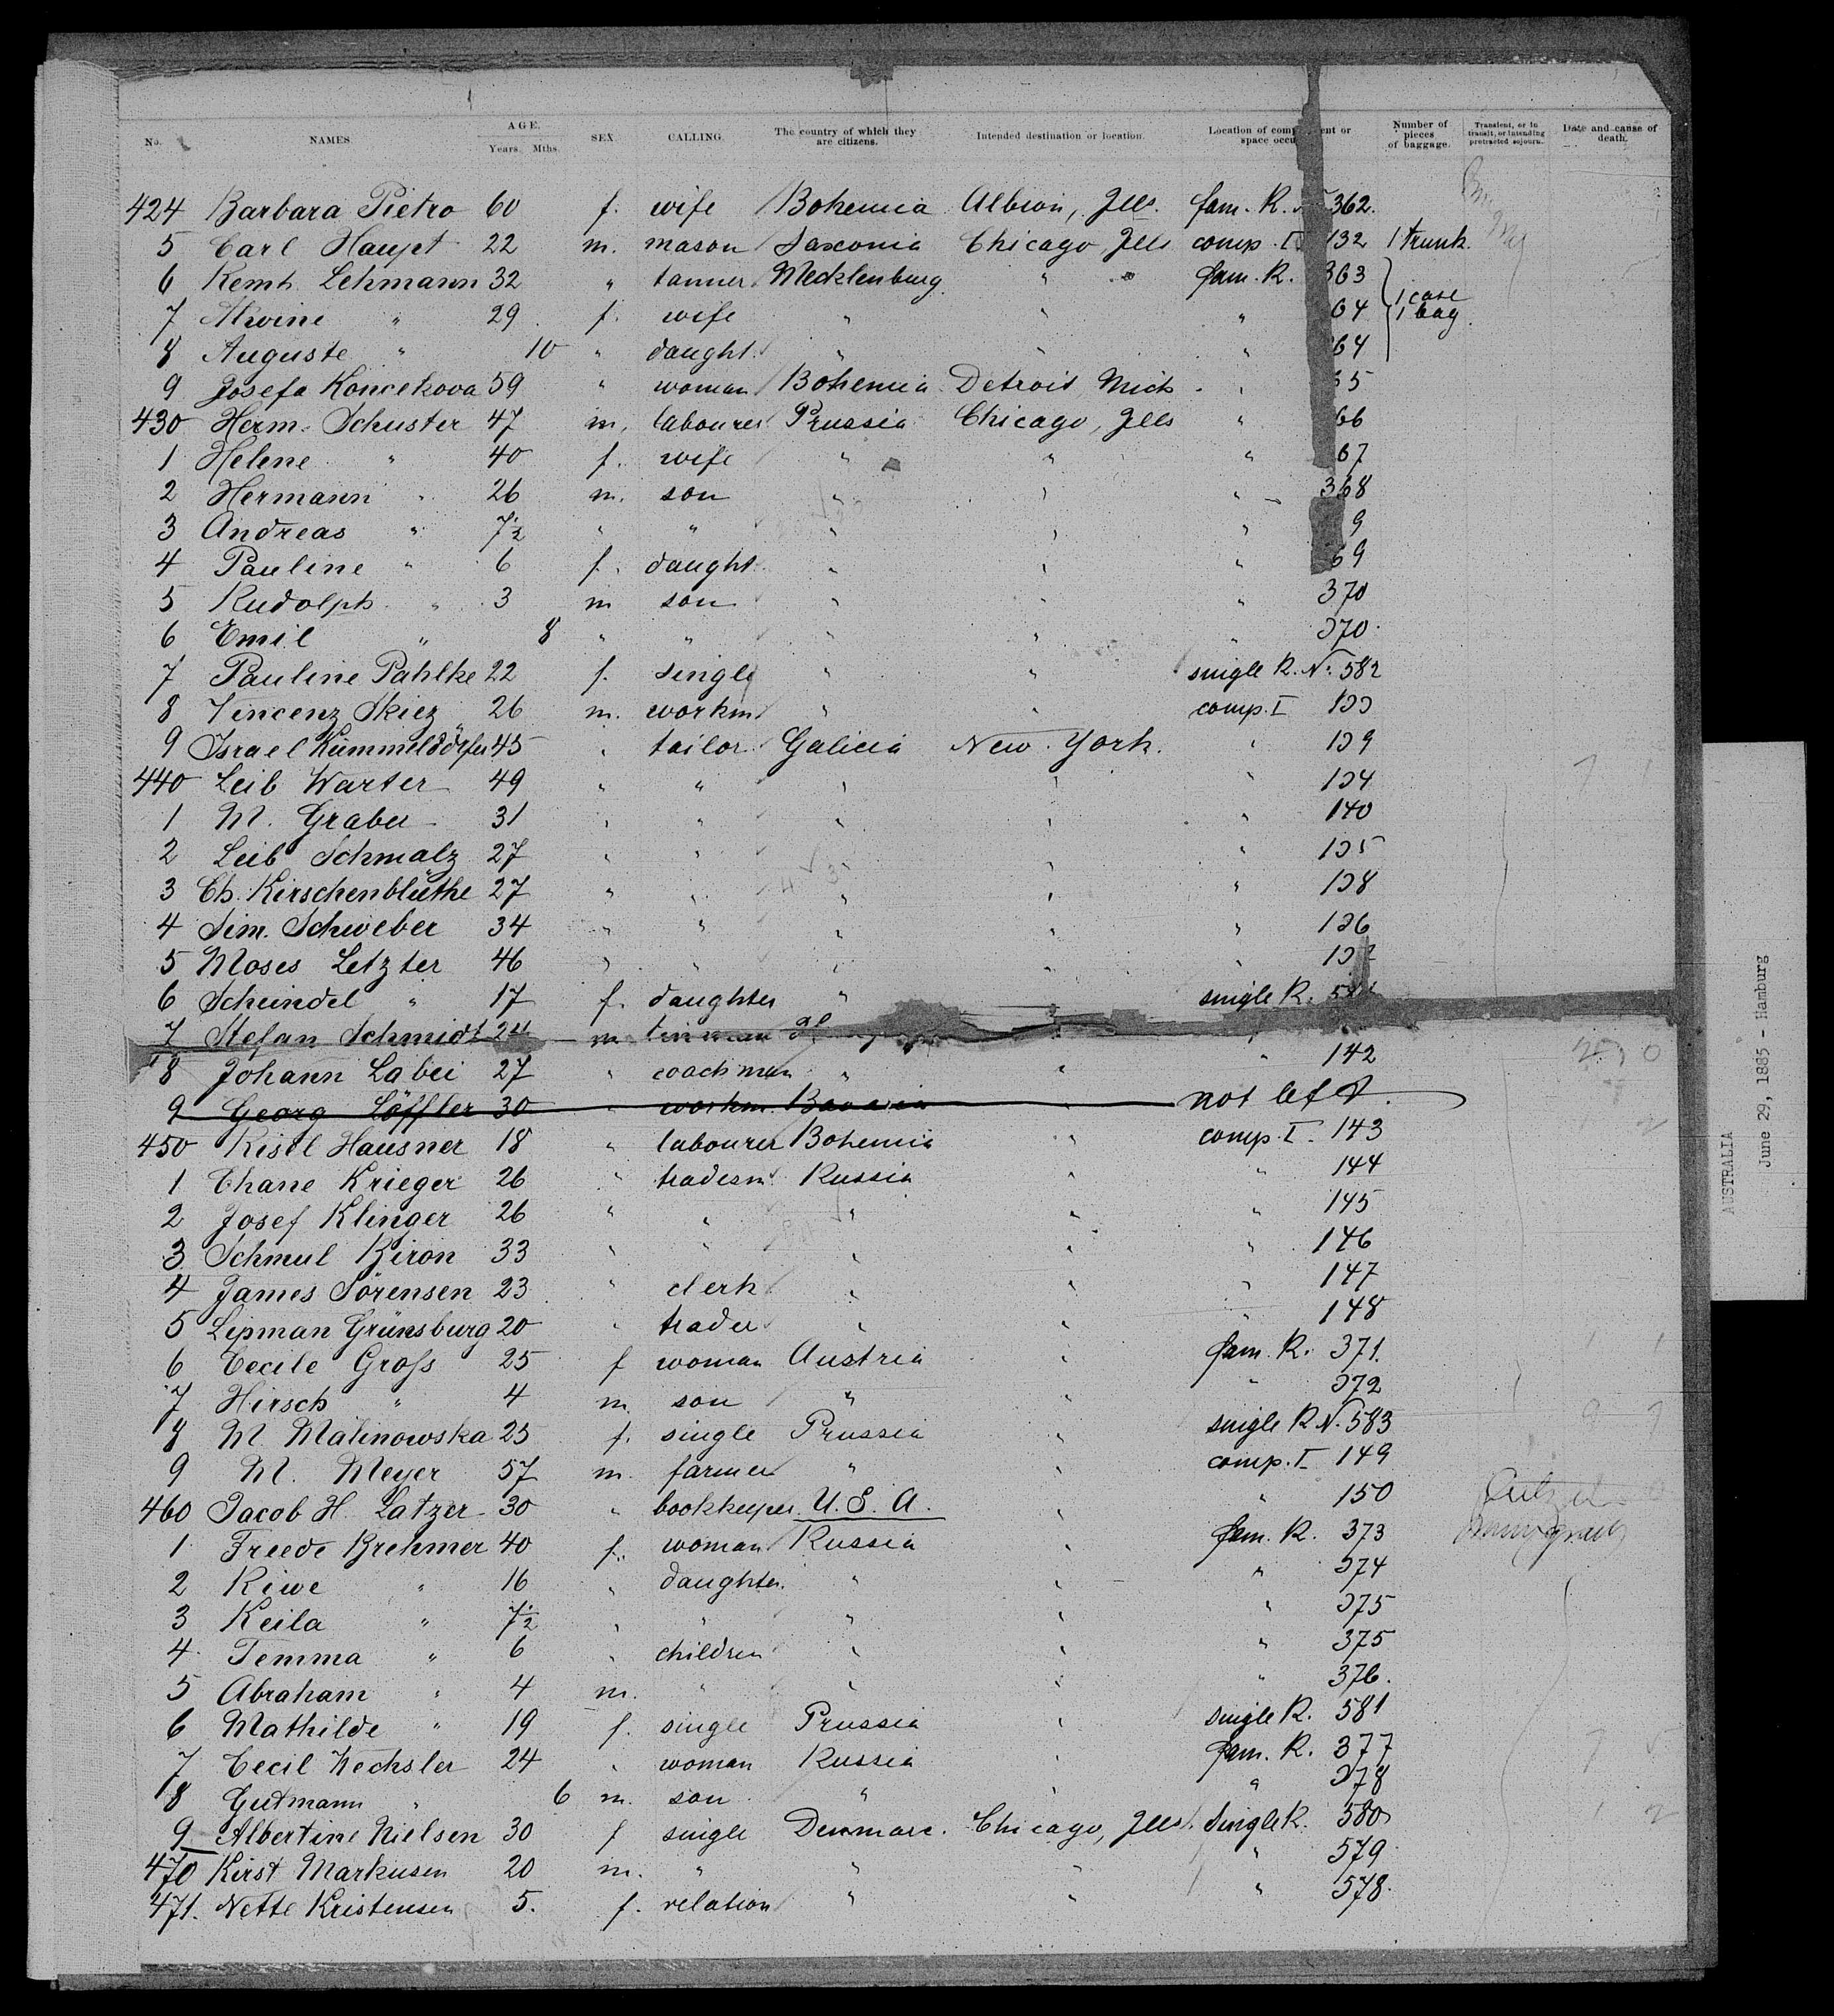 No. NAMES AGE. Years. Mths. SEX. CALLING. The country of which they are citizens. Intended destination or location. Location of comp ent or space occu Number of pieces of baggage. Transient, or in transit, or intending protracted sojourn. Date and cause of death.
424 Barbara Pietro 60 f. wife Bohemia Albion, Ills. fam. R. 362.
5 Carl Haupt 22 m. mason Saxonia Chicago, Ills comp. I 132 1 trunk.
6 Lehmann 32 " tanner Mecklenburg " " fam. R. 363
7 Alwine " 29 f. wife " " " 64 1 case 1 bag.
8 Auguste " 10 " daught. " " " 64
9 Josefa Koncekova 59 " woman Bohemia Detroit Mich " 65
430 Herm. Schuster 47 m. labourer Prussia Chicago, Ills " 66
1 Helene " 40 f. wife " " " 67
2 Hermann " 26 m. son " " " 368
3 Andreas " 7½ " " " " " 9
4 Pauline " 6 f. daught. " " " 69
5 Rudolph " 3 m son " " " 370
6 Emil " 8 " " " " " 370.
7 Pauline Pahlke 22 f. single " " single R. No. 582
8 Vincenz Skiez 26 m. workm " " comp. I 133
9 Israel Kümmeldörfer 45 " tailor Galicia New York. " 139
440 Leib Warter 49 " " " " " 134
1 M. Graber 31 " " " " " 140
2 Leib Schmalz 27 " " " " " 135
3 Ch. Kirschenblüthe 27 " " " " " 138
4 Sim. Schweber 34 " " " " " 136
5 Moses Letzter 46 " " " " " 137
6 Scheindel " 17 f. daughter " single R.
7 Stefan Schmidt 24 m "
8 Johann Labei 27 " coachman " " " 142
9 Georg Löffler 30 " workm. Bavaria " not left.
450 Ristl Hausner 18 " labourer Bohemia " comp. I. 143
1 Chane Krieger 26 " tradesm. Russia " " 144
2 Josef Klinger 26 " " " " " 145
3 Schmul Biron 33 " " " " " 146
4 James Sörensen 23 " clerk " " " 147
5 Lipman Grünsburg 20 " trader " " " 148
6 Cecile Gross 25 f woman Austria " fam. R. 371.
7 Hirsch " 4 m. son " " " 372
8 M. Malinowska 25 f. single Prussia " single R. N. 583
9 M. Meyer 57 m. farmer " " comp. I 149
460 Jacob H. Latzer 30 " bookkeeper U. S. A. " " 150
1 Freede Brehmer 40 f. woman Russia " fam. R. 373
2 Riwe " 16 " daughter. " " " 374
3 Keila " 7½ " " " " " 375
4 Temma " 6 " children " " " 375
5 Abraham " 4 m. " " " " 376.
6 Mathilde " 19 f. single Prussia " single R. 581
7 Cecil Wechsler 24 " woman Russia " fam. R. 377
8 Gutmann " 6 m. son " " " 378
9 Albertine Nielsen 30 f single Denmarc. Chicago, Ills. Single R. 580
470 Kirst Markusen 20 m. " " " " 579
471. Nette Kristensen 5. f. relation " " " 578.
AUSTRALIA
June 29, 1885 - Hamburg